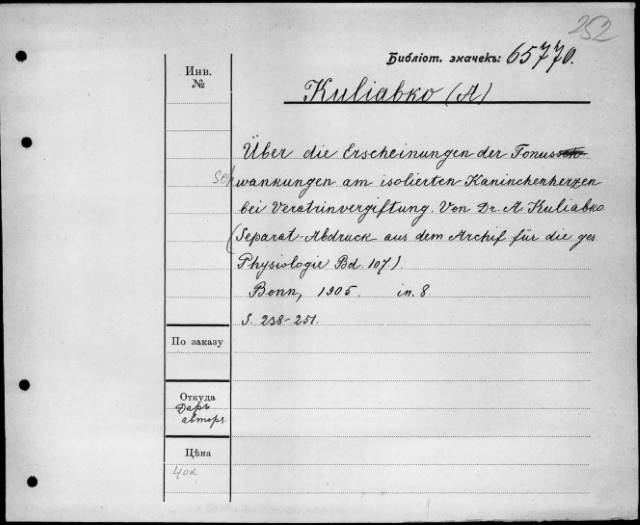 252
Библіот. значекъ: 65770.
Инв.
№
Kuliabko (A)
Über die Erscheinungen der Tonus
schwankungen am isolierten Kaninchenherzen
bei Veratrinvergiftung. Von Dr. A Kuliabko
(Separat-Abdruck aus dem Archif für die ges
Physiologie Bd. 107)
Bonn, 1905. in. 8.
S. 238-251.
По заказу
Откуда
Даръ
автора
Цѣна
40к